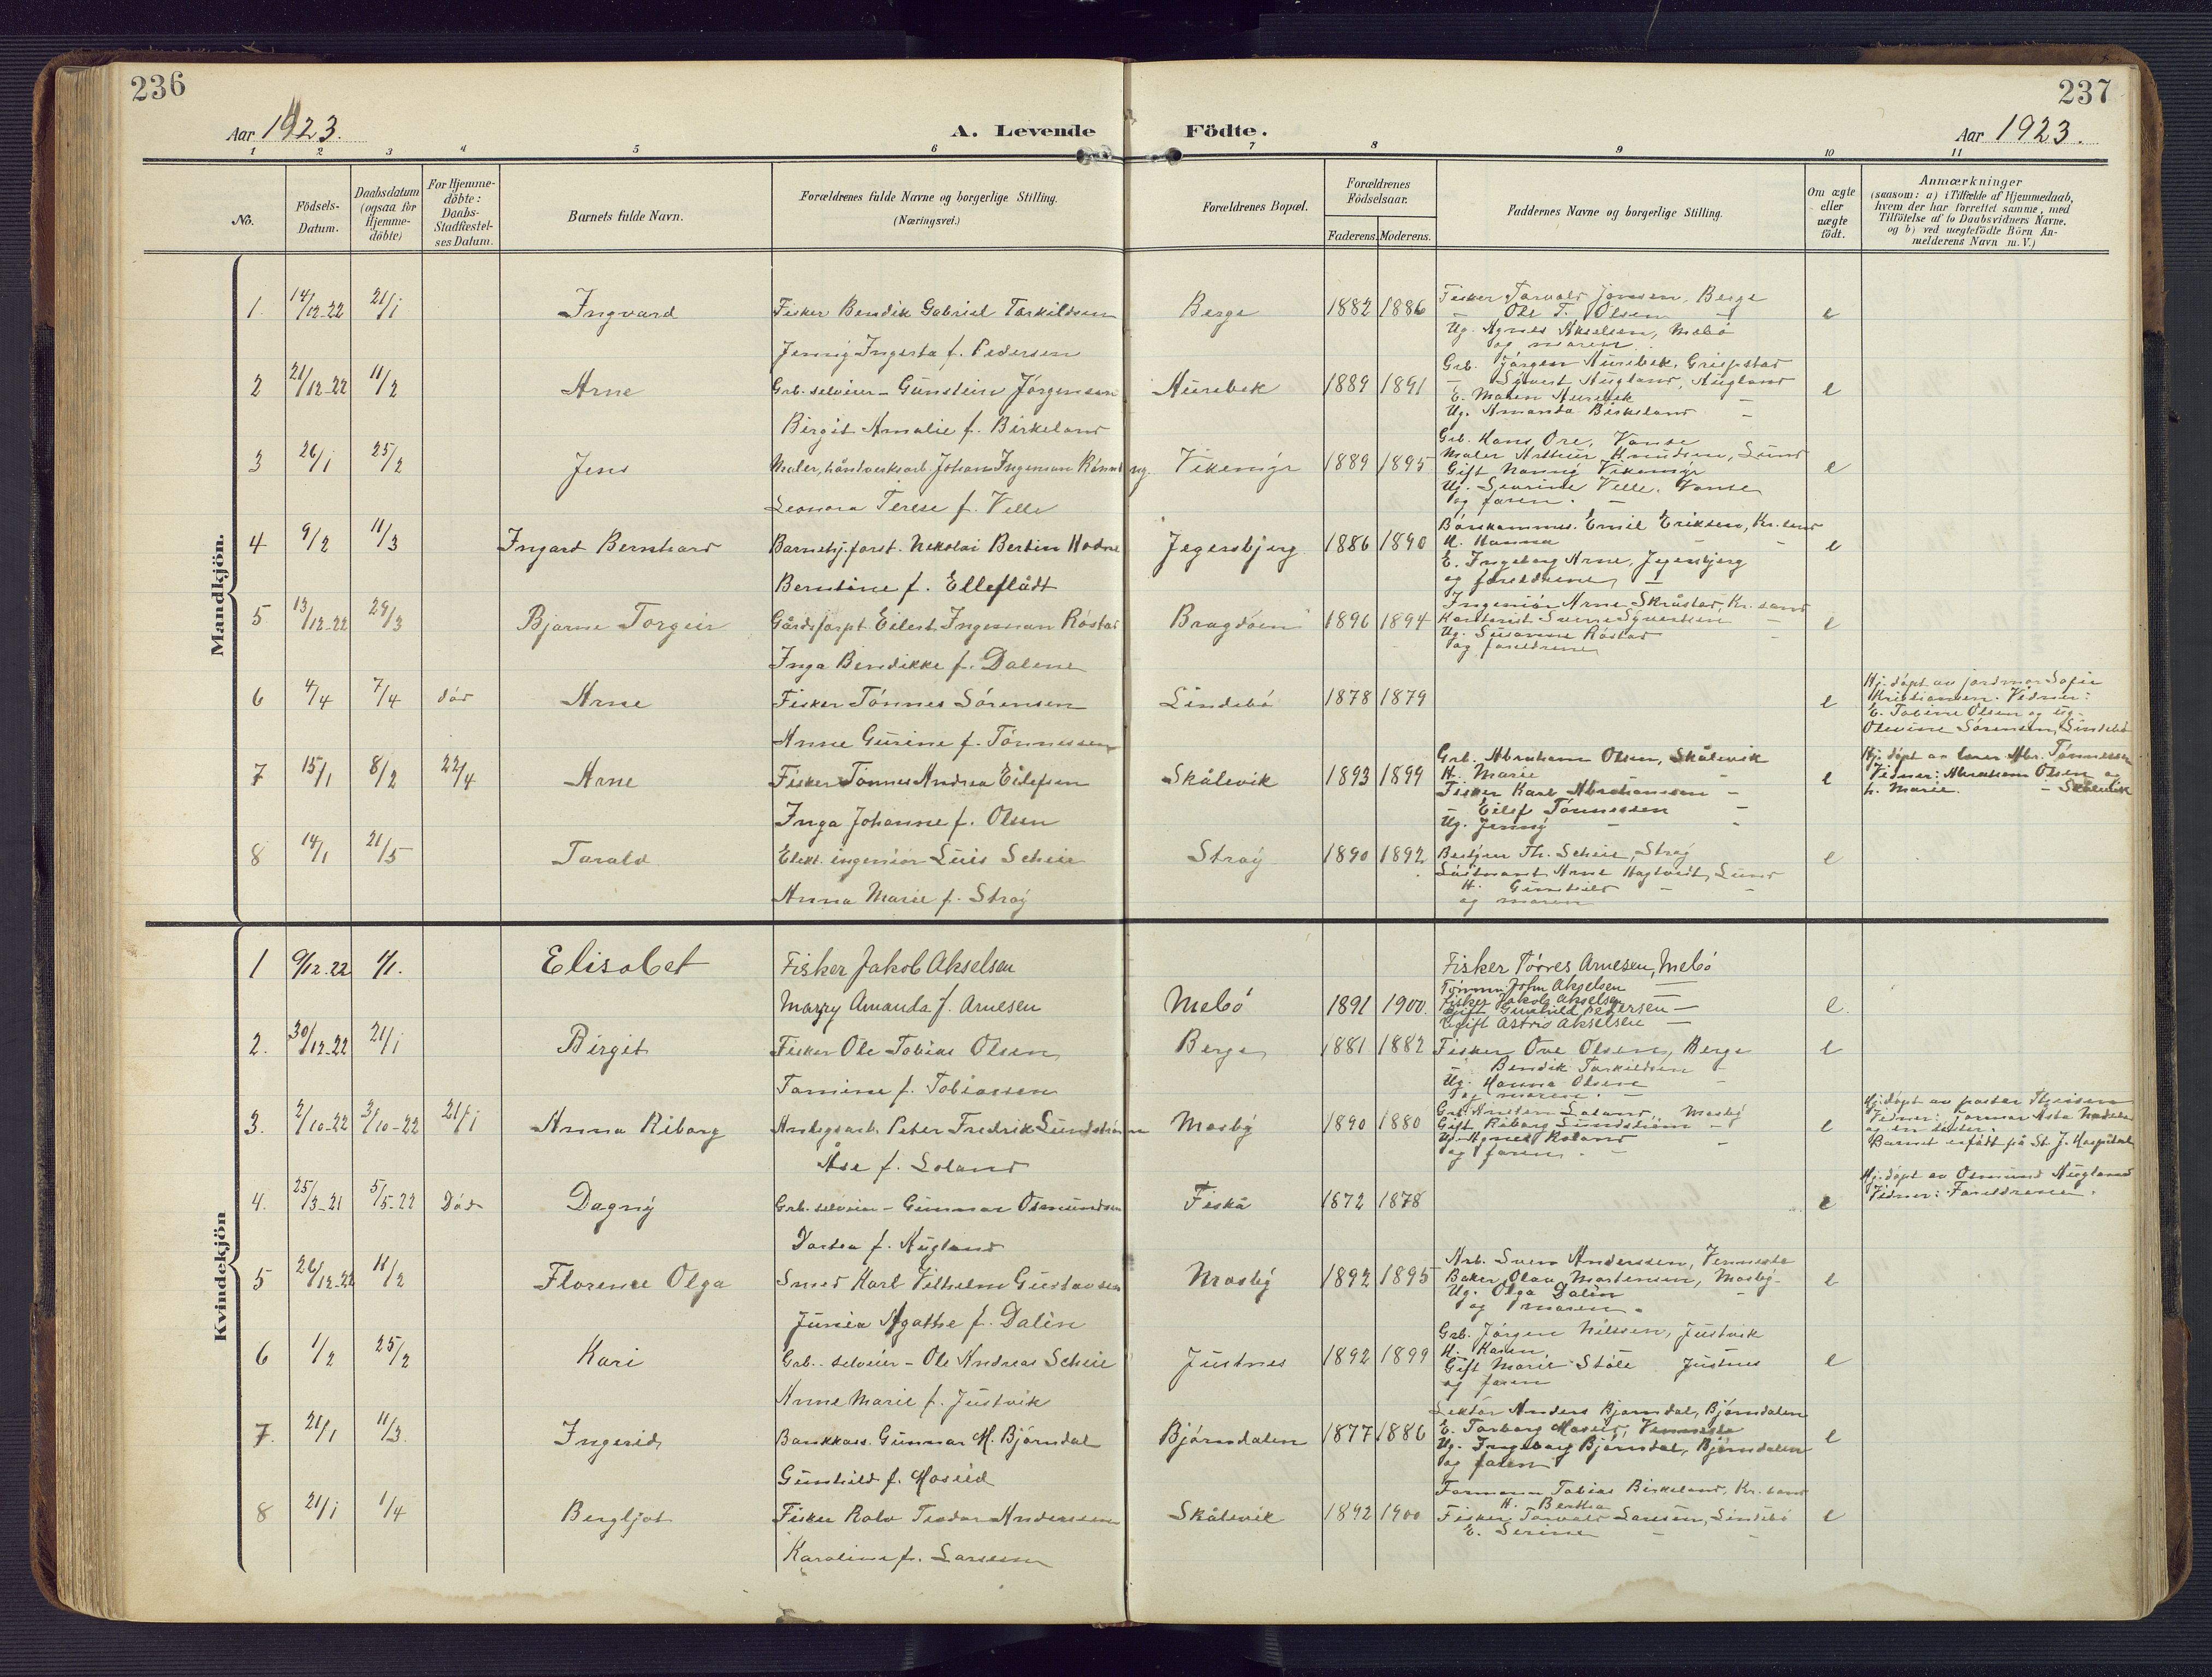 236
237
Aar 1923.
A. Levende Födte.
Aar 1923.
1 2 3 4 5 6 7 8 9 10 11
No.
Födsels-Datum.
Daabsdatum (ogsaa for Hjemme-döbte)
For Hjemme-döbte: Daabs-Stadfæstel-ses Datum.
Barnets fulde Navn.
Forældrenes fulde Navne og borgerlige Stilling.
(Næringsvei.)
Forældrenes Bopæl.
Forældrenes Födselsaar.
Faderens. Moderens.
Faddernes Navne og borgerlige Stilling.
Om ægte eller uægte födt.
Anmærkninger
(saasom: a) i Tilfælde af Hjemmedaab,
hvem der har forrettet samme, med
Tilföielse af to Daabsvidners Navne.
og b) ved uægtefödte Börn An-
melderens Navn m. V.)
Mandkjön.
1. 14/12-22 21/1 Ingvard Fisker Bendik Gabriel Tarkildsen Berge 1882 1886 Fisker Tarvald Jonsen, Berge e
- Ole T. Olsen -
Ug. Agnes Akselsen, Mebö
og moren.
Jenny Ingerta f. Pedersen
2 21/12-22 11/2 Arne Grb. selveier - Gunstein Jörgensen Aurebek 1889 1891 Grb. Jörgen Aurebek, Gripstad e
- Sivert Augland, Augland
E. Malen Aurebek -
Ug. Amanda Birkeland -
Birgit Amalie f. Birkeland
3 26/1 25/2 Jens Maler, håndverksarb. Johan Ingeman Vikemyr 1889 1895 Grb. Hans Ore, Vanse e
Maler Arthur Knudsen, Lund
Gift Nanny Vikemyr
Ug. Severine Velle, Vanse
og faren. -
Leonora Terese f. Velle
4 9/2 11/3 Ingard Bernhard Barnehj.forst. Nikolai Bertin Hodne Jegersbjerg 1886 1890 Emil Eriksen, Kr.sand e
H. Hanna - -
E. Ingeborg Arne, Jegersbjerg
og foreldrene, -
Berntine f. Elleflådt
5 13/12-22 29/3 Bjarne Torgeir Gårdsforpt. Eilert Ingeman Röstad Bragdöen 1896 1894 Ingeniör Arne Skråstad, Kr.sand e
Kontorist Sverre Syvertsen -
Ug. Susanne Röstad -
og foreldrene
Inga Bendikke f. Dalene
6 4/4 7/4 död Arne Fisker Tönnes Sörensen Lindebö 1878 1879 e Hj.döpt av jordmor Sofie
Kristiansen. Vidner:
E. Tobine Olsen og ug.
Olevine Sörensen, Lindebö
Anne Gurine f. Tönnessen
7 15/1 8/2 22/4 Arne Fisker Tönnes Andrea Eilefsen Skålevik 1893 1899 Grb. Abraham Olsen, Skålevik e Hj.döpt av lærer Abr. Tönnessen
H. Marie - Vidner: Abraham Olsen og
Fisker Karl Abrahamsen - h. Marie. - Skålevik
- Eilef Tönnessen -
Ug. Jenny - -
Inga Johanne f. Olsen
8 14/1 21/5 Tarald Elekt. ingeniör Luis Scheie Stray 1890 1892 Bestyrer Th. Scheie, Stray e
Löitnant Arne Hagtvedt, Lund
H. Gunhild - -
og moren
Anna Marie f. Stray
Kvindekjön
1 9/12-22 1/1. Elisabet Fisker Jakob Akselsen Fisker Törres Arnesen, Mebö
Marry Amanda f. Arnesen Mebö 1891 1900. e.
John Akselsen -
Fisker Jakob Akselsen
Gift Gunhild Pedersen -
Ugift Astrid Akselsen -
2. 30/12-22 21/1 Birgit Fisker Ole Tobias Olsen Berge 1881 1882 Fisker Ove Olsen, Berge e
- Bendik Tarkildsen -
Ug. Hanna Olsen -
og moren. -
Tomine f. Tobiassen
3. 2/10-22 3/10-22 21/1 Anna Riborg Anlegsarb. Peter Fredrik Lundström Mosby 1890 1880 Grb. Ansten Loland, Mosby e Hj.döpt av pastor
Gift Riborg Lundström - Vidner: jormor Asta
Ug. Agnes Roland - og en söster.
og faren. - Barnet er födt på St. J. Hospital
Åse f. Loland
4. 25/3-21 5/5-22 Död Dagny Grb. selveier - Gunnar Osmundsen Fiskå 1872 1878 e Hj.döpt av Osmund Augland
Vidner: Foreldrene.
Dortea f. Augland
5 26/12-22 11/2 Florence Olga Smed Karl Vilhelm Gustavsen Mosby 1892 1895 Arb. Sven Anderssen, Vennesla e
Baker Olav Mortensen, Mosby.
Ug. Olga Dalin -
og moren.
Junia Agathe f. Dalin
6 1/2 25/2 Kari Grb. selveier - Ole Andreas Scheie Justnes 1892 1899 Grb. Jörgen Nilssen, Justvik e
H. Karen
Gift Marie Stöle Justnes
og faren
Anne Marie f. Justvik
7. 21/1 11/3 Ingerid Bankkass. Gunnar M. Björndal Björndalen 1877 1886 Lektor Anders Bjorndal, Björndalen e
E. Torborg Moseid, Vennesla
Ug. Ingeborg Björndal, Björndalen
og faren
Gunhild f. Moseid
8 21/1 1/4 Bergljot Fisker Rolv Teodor Anderssen Skålevik 1892 1900 Formann Tobias Birkeland, Kr.sand e
H. Bertha
Fisker Tarvald Larsen, Lindebö
E. Serine - -
Karoline f. Larssen